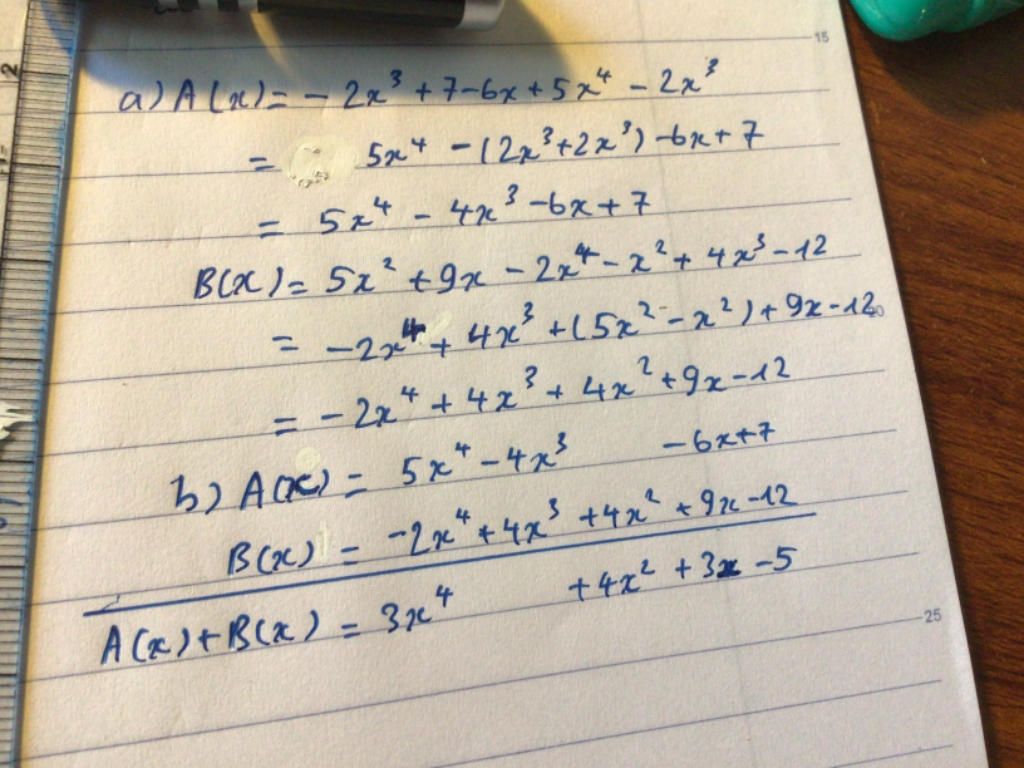 15
a) A(x) = - 2x³ + 7 - 6x + 5x⁴ - 2x³
= 5x⁴ - (2x³ + 2x³) - 6x + 7
= 5x⁴ - 4x³ - 6x + 7
B(x) = 5x² + 9x - 2x⁴ - x² + 4x³ - 12
= -2x⁴ + 4x³ + (5x² - x²) + 9x - 12
= - 2x⁴ + 4x³ + 4x² + 9x - 12
b) A(x) = 5x⁴ - 4x³ - 6x + 7
B(x) = -2x⁴ + 4x³ + 4x² + 9x - 12
A(x) + B(x) = 3x⁴ + 4x² + 3x - 5
25
2